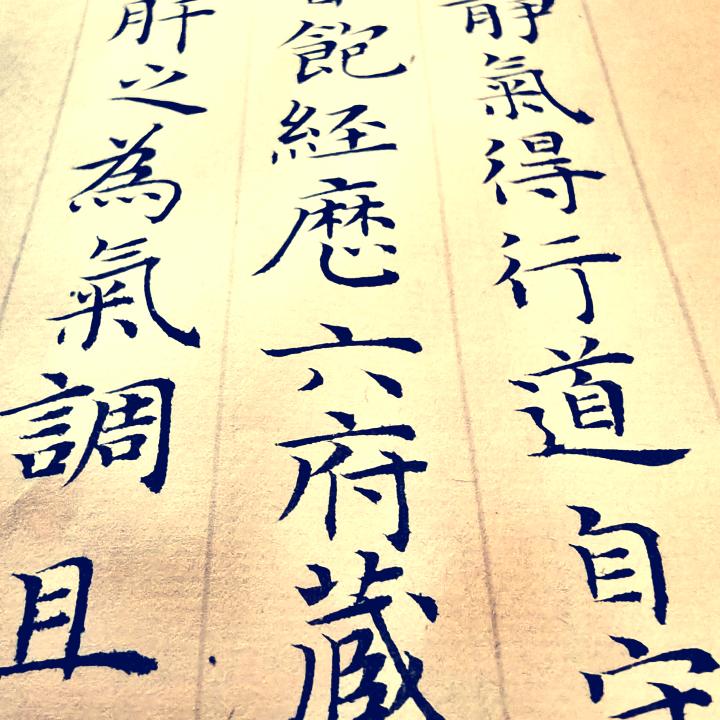 靜氣得行道自守
飽經歷六府藏
肝之為氣調且